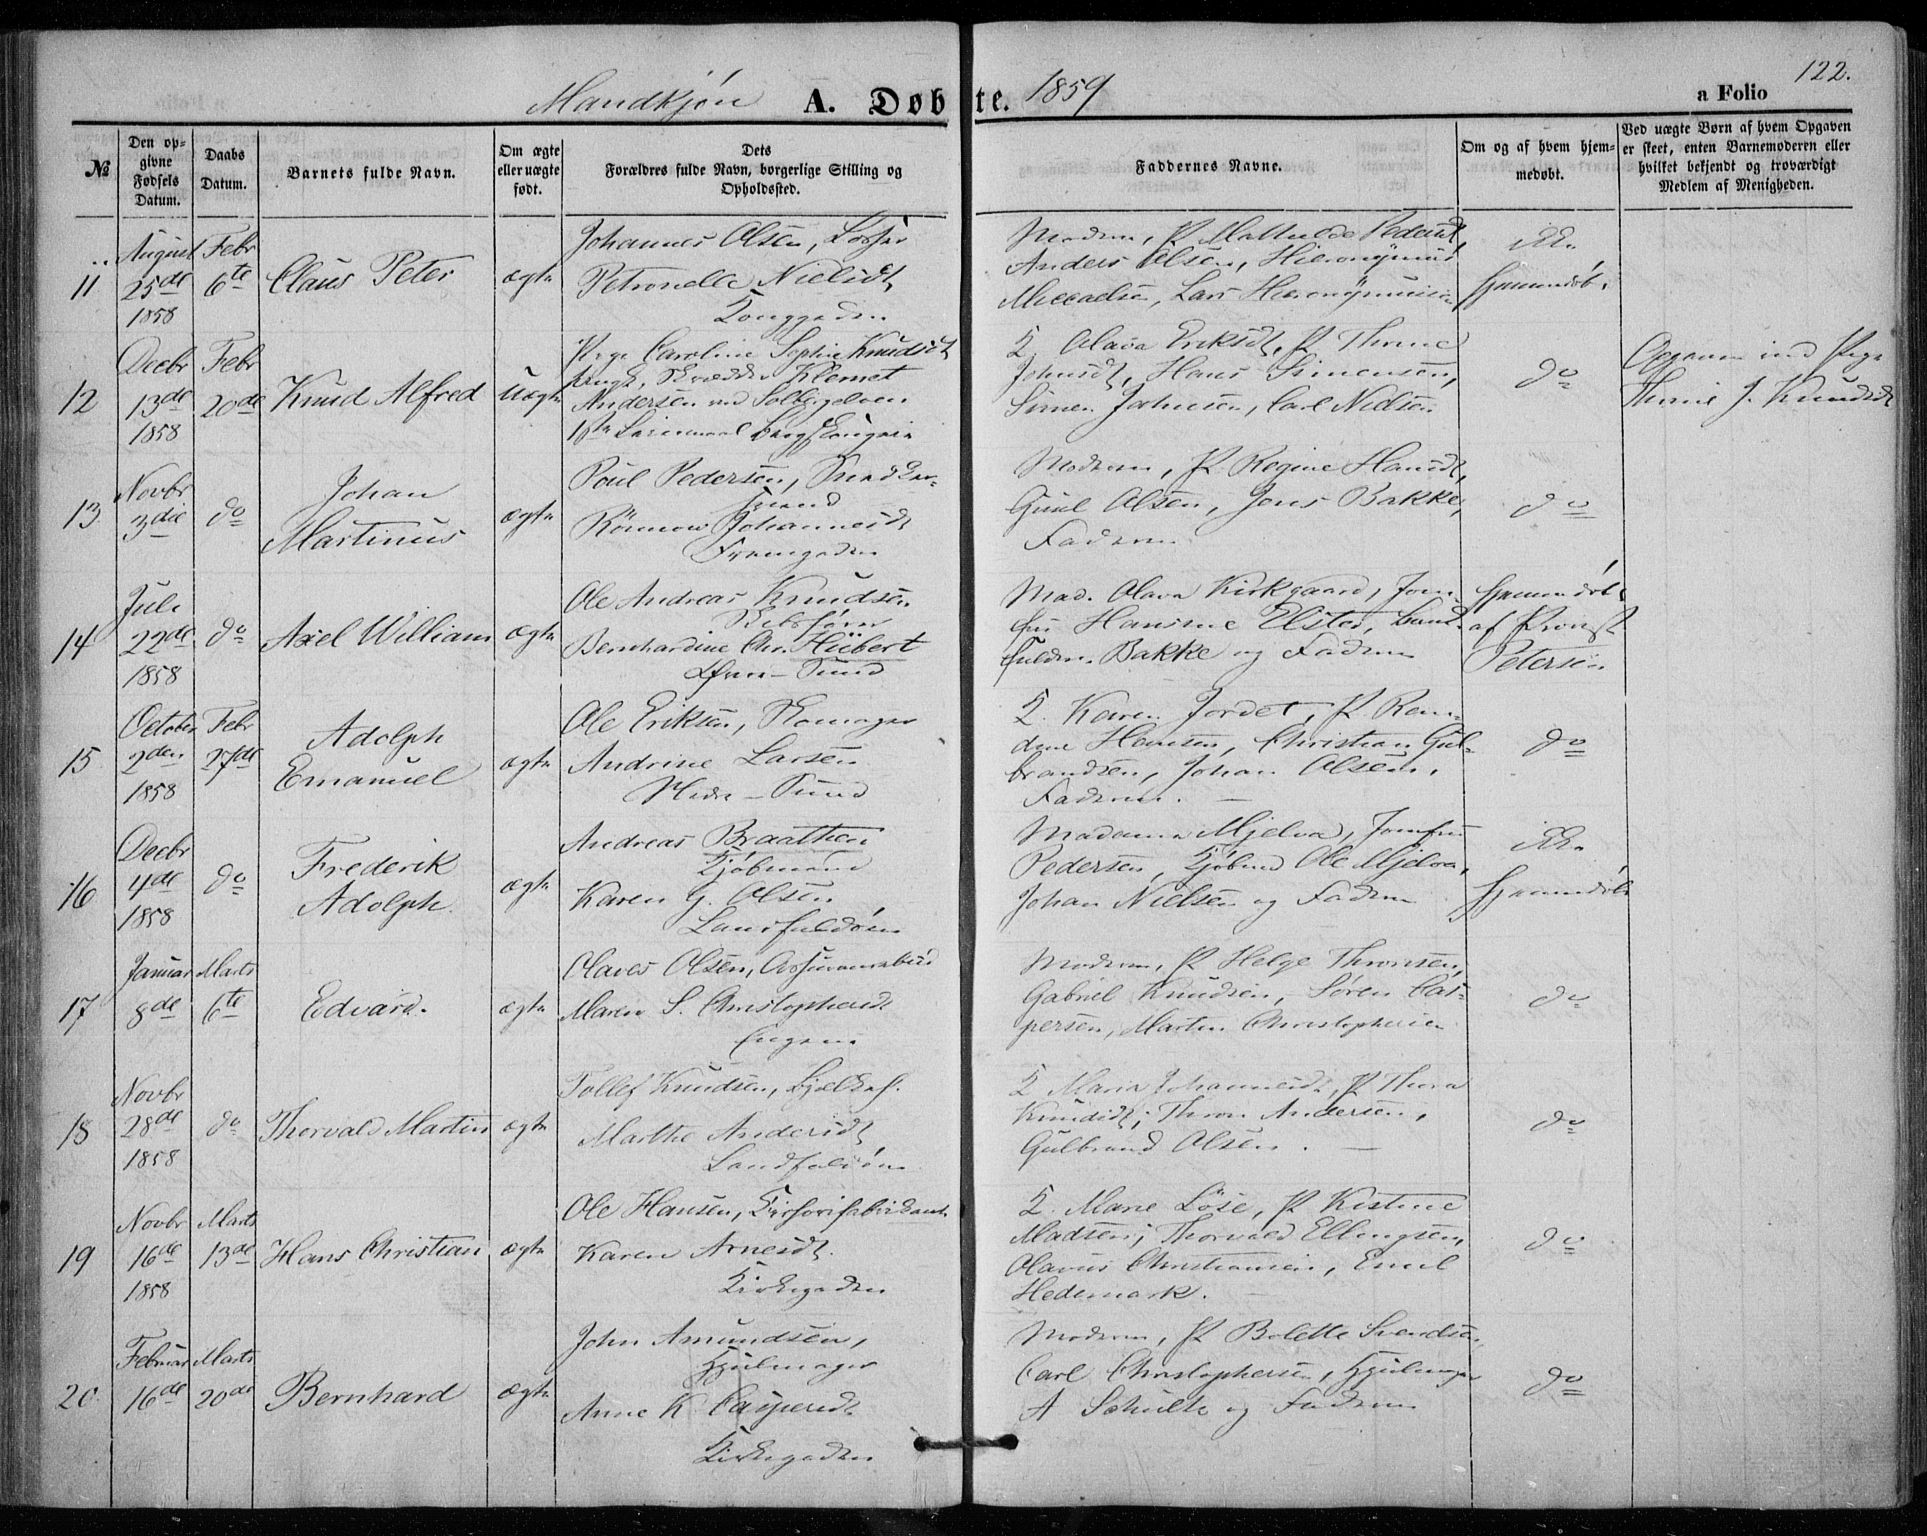 Mandkjøn A. Døbte. 1859 a Folio 122.
№
Den opgivne Fødsels Datum.
Daabs Datum.
Barnets fulde Navn.
Om ægte eller uægte født.
Dets Forældres fulde Navn, borgerlige Stilling og Opholdssted.
Faddernes Navne.
Om og af hvem hjemmedøbt.
Ved uægte Børn af hvem Opgaven er skeet, enten Barnemoderen eller hvilket bekjendt og troværdigt Medlem af Menigheden.
11
August 25de 1858
Febr 6te
Claus Peter
ægte
Johannes Olsen,
Petronelle Nielsdt
Konggaden
Moderen, P. Mathilde Pedersdt,
Anders Olsen, Hieronymus
Miccaelsen, Lars Hieronymussen
ikke
hjemmedøbt
12
Decbr 13de 1858
Febr 20de
Knud Alfred
Uægte
Pige Caroline Sophie Knudsdt
Ungk. Skrædder Klemet
Andersen ved Solbergelven
K Olava Eriksdt, P. Thrine
Johnsdt, Hans Simensen,
Simen Johnsen, Carl Nielsen
do
Opgaven ved Pige
J. Knudsdt
13
Novbr 3die
do
Johan
Martinus
ægte
Poul Pedersen,
Svend
Rönnow Johannesdt
Tramgaden
Moderen, P. Regine Hansdt,
Gunil Olsen, Jens Bakke,
Faderen
do
14
Juli 22de 1858
do
Axel William
ægte
Ole Andreas Knudsen
Bernhardine Chr. Hübert
Øvre-Sund
Mad. Olava Kirkgaard, Jom-
fru Hansine Elster,
Bakke og Faderen
hjemmedøbt
af Provst
Petersen
15
October 2den 1858
Febr 27de
Adolph
Emanuel
ægte
Ole Eriksen, Skomager
Andrine Larsen
Nedre-Sund
K. Karen Jordet, P. Ran-
dine Hansen, Christian Gul-
brandsen, Johan Olsen,
Faderen.
do
16
Decbr 4de 1858
do
Frederik
Adolph.
ægte
Andreas Braathen
Kjöbmand
Karen G. Olsen
Landfaldøen
Madame Mjelva, Jomfru
Pedersen, Kjöbmd Ole Mjelva,
Johan Nielsen og Faderen
ikke
hjemmedøbt
17
Januar 8de
Marts 6te
Edvard.
ægte
Olaves Olsen, Assurancebud
Maren S. Christophersdt
Engene
Moderen, P. Helge Thronsen,
Gabriel Knudsen, Søren Cas-
persen, Martin Christophersen
do
18
Novbr 28de 1858
do
Thorvald Martin
ægte
Tollef Knudsen,
Marthe Andersdt
Landfaldøen
K Maria Johannesdt, P. Thora
Knudsdt, Thron Andersen,
Gulbrand Olsen.
do
19
Novbr 16de 1858
Marts 13de
Hans Christian
ægte
Ole Hansen,
Karen Arnesdt.
Kirkegaden
K. Marie Löse, P. Kistine
Madsen, Thorvald Ellingsen,
Olavus Christiansen, Emil
Hedemark.
do
20
Februar 16de
Marts 20de
Bernhard
ægte
John Amundsen,
Hjulmager
Anne K Caspersdt
Kirkegaden
Moderen, P. Bolette Svendsen,
Carl Christophersen, Hjulmager
A Schulte og Faderen
do